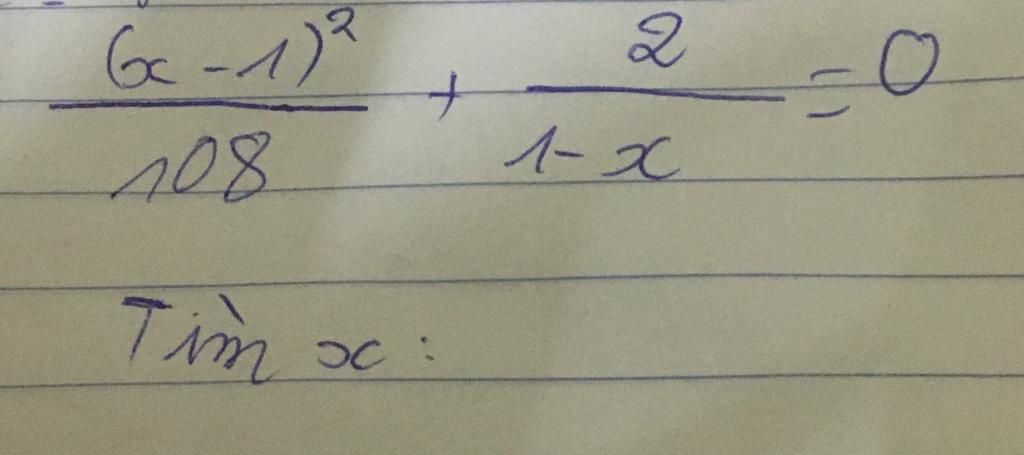 (x - 1)² / 108 + 2 / 1 - x = 0
Tìm x :